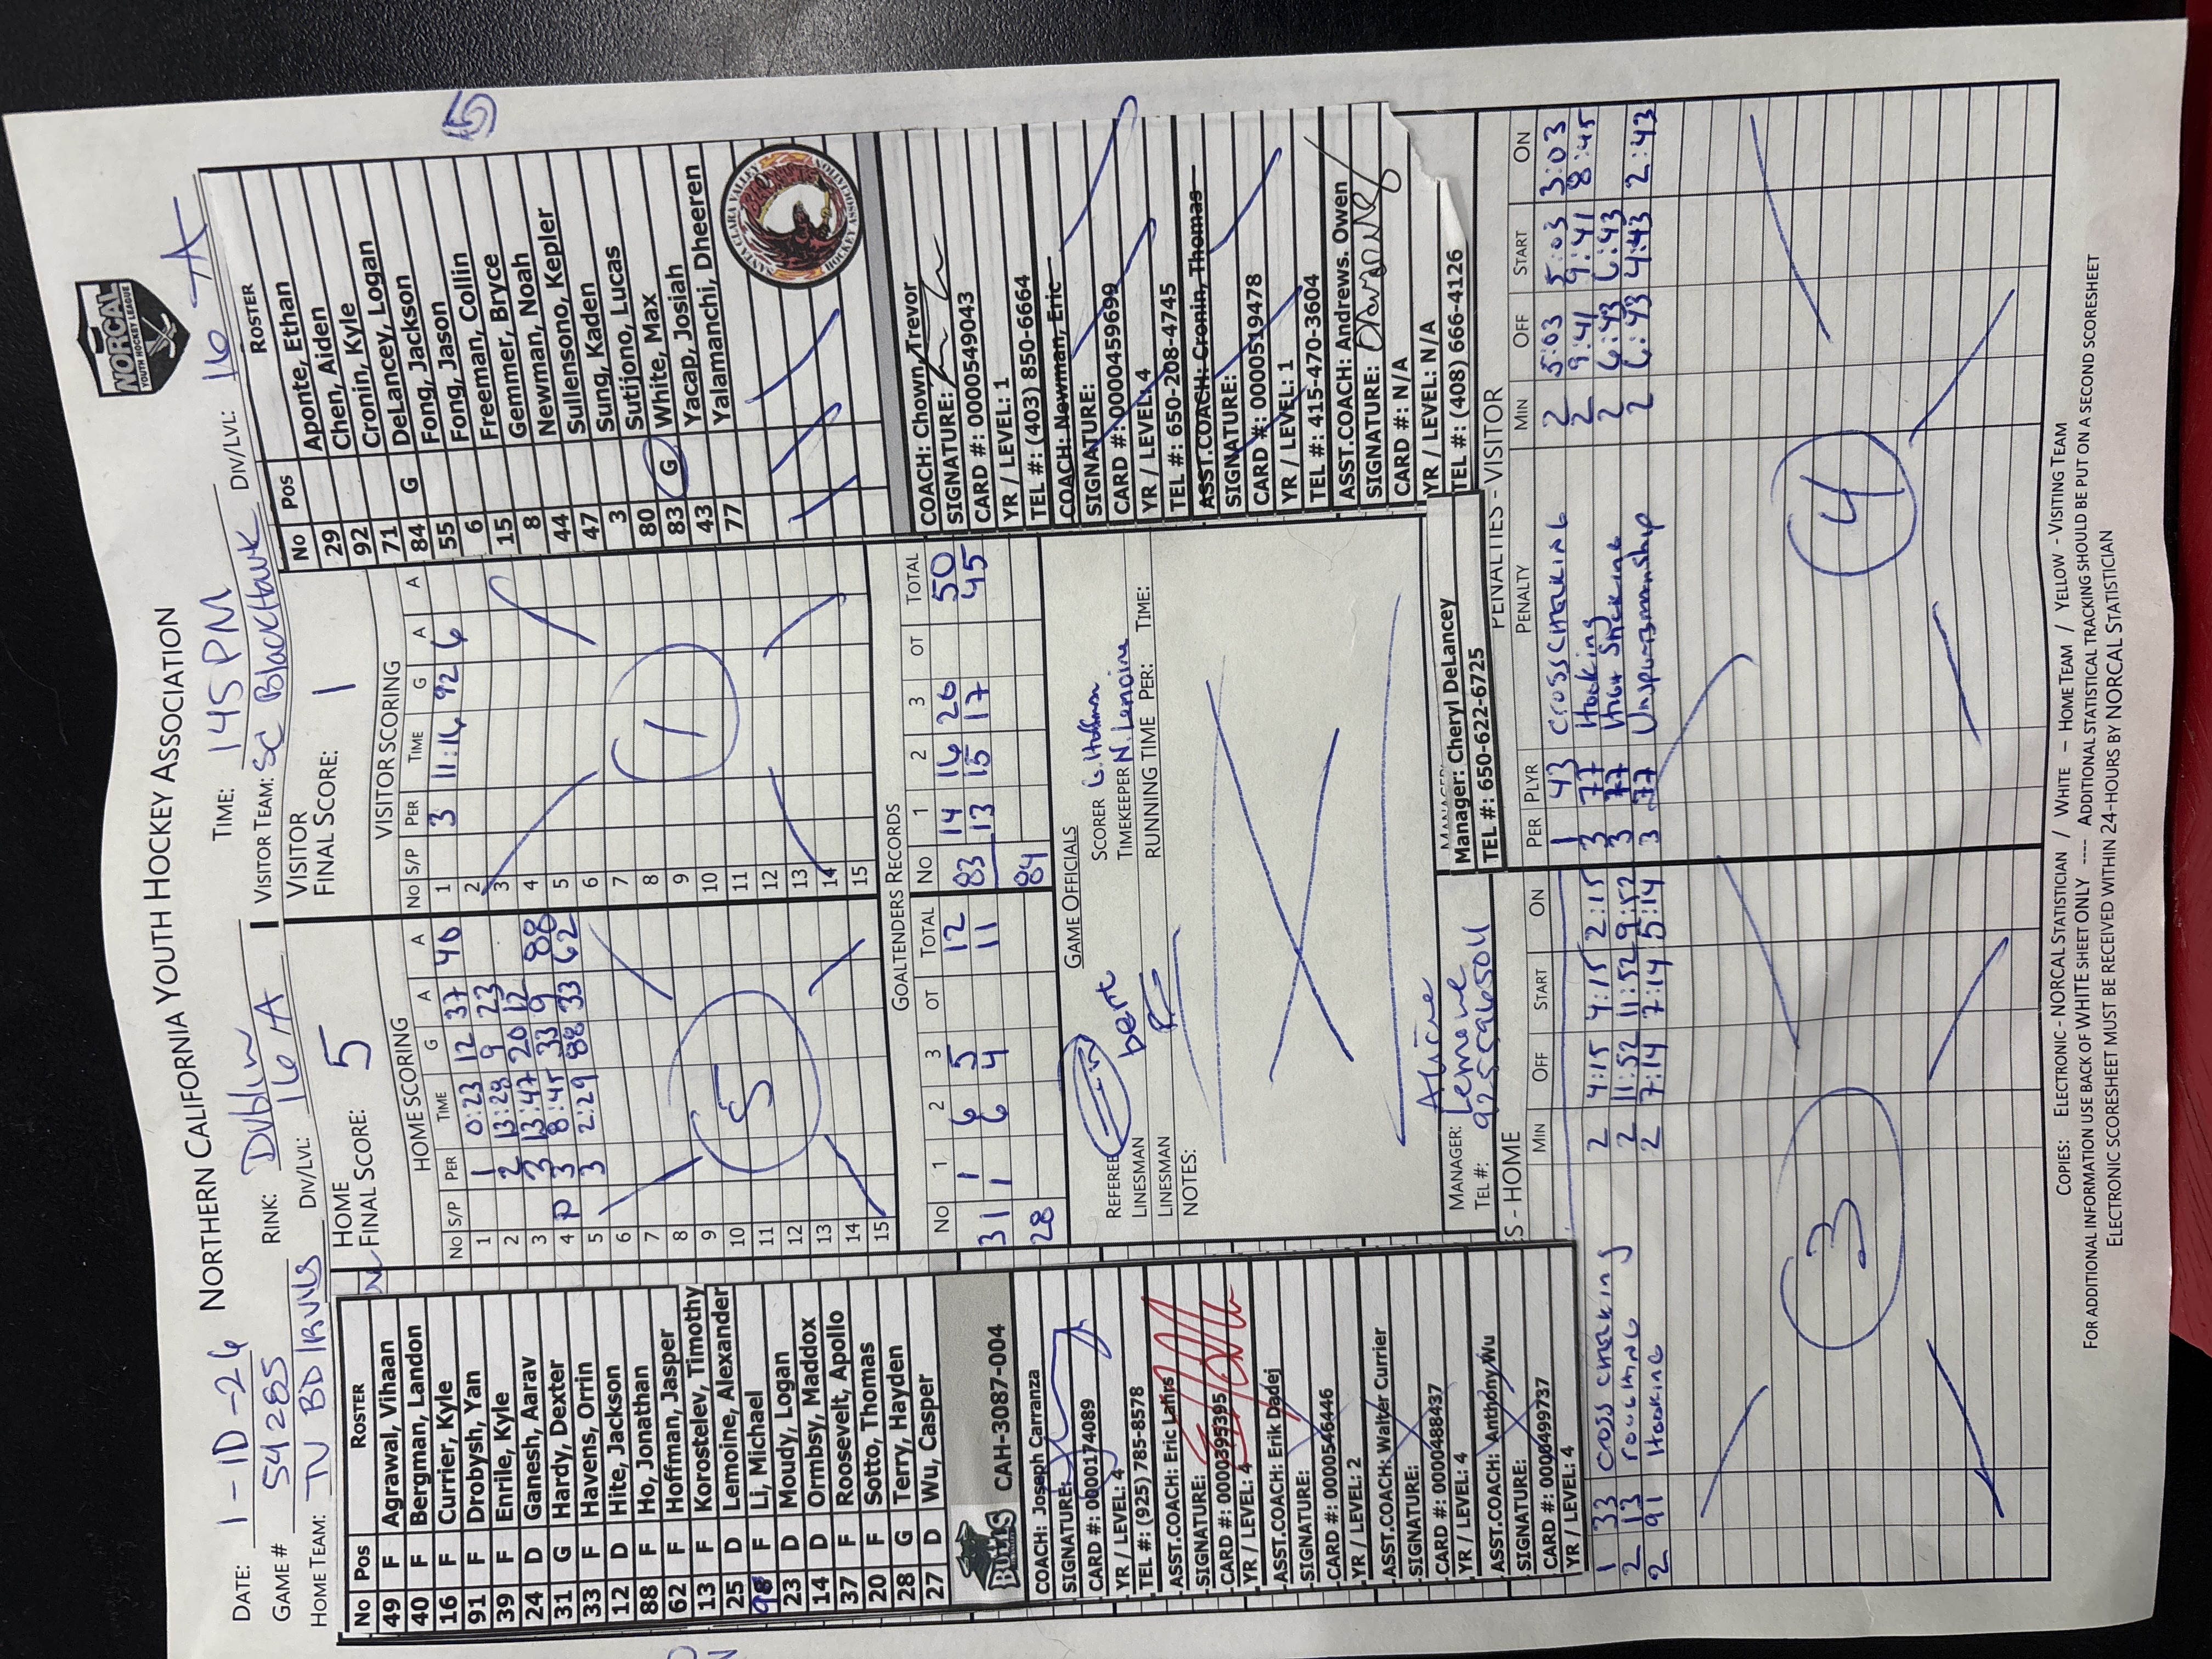 NORTHERN CALIFORNIA YOUTH HOCKEY ASSOCIATION
NORCAL
YOUTH HOCKEY LEAGUE
DATE: 1-10-26
GAME # 54285
RINK: Dublin
TIME: 145 PM
HOME TEAM: TV BD
DIV/LVL: 16A
VISITOR TEAM: SC BlackHawk
DIV/LVL: 16 A
HOME
FINAL SCORE: 5
VISITOR
FINAL SCORE: 1
No Pos ROSTER
49 F Agrawal, Vihaan
40 F Bergman, Landon
16 F Currier, Kyle
91 F Drobysh, Yan
39 F Enrile, Kyle
24 D Ganesh, Aarav
31 G Hardy, Dexter
33 F Havens, Orrin
12 D Hite, Jackson
88 F Ho, Jonathan
62 F Hoffman, Jasper
13 F Korostelev, Timothy
25 D Lemoine, Alexander
98 F Li, Michael
23 D Moudy, Logan
14 D Ormbsy, Maddox
37 F Roosevelt, Apollo
20 F Sotto, Thomas
28 G Terry, Hayden
27 D Wu, Casper
BULLS CAH-3087-004
COACH: Joseph Carranza
SIGNATURE:
CARD #: 0000174089
YR / LEVEL: 4
TEL #: (925) 785-8578
ASST.COACH: Eric Lafirs
SIGNATURE:
CARD #: 0000395395
YR / LEVEL: 4
ASST.COACH: Erik Dadej
SIGNATURE:
CARD #: 0000546446
YR / LEVEL: 2
ASST.COACH: Walter Currier
SIGNATURE:
CARD #: 0000488437
YR / LEVEL: 4
ASST.COACH: Anthony Wu
SIGNATURE:
CARD #: 0000499737
YR / LEVEL: 4
HOME SCORING
No S/P PER TIME G A A
1 1 0:23 12 37 40
2 2 13:28 9 23
3 3 13:47 20 12
4 P 3 8:45 33 9 88
5 3 2:29 88 33 62
6
7
8
9
10
11
12
13
14
15
5
VISITOR SCORING
No S/P PER TIME G A A
1 3 11:16 92 6
2
3
4
5
6
7
8
9
10
11
12
13
14
15
1
GOALTENDERS RECORDS
No 1 2 3 OT TOTAL
31 1 6 5 12
1 6 4 11
28
No 1 2 3 OT TOTAL
83 14 16 20 50
13 15 17 45
84
GAME OFFICIALS
REFEREE
LINESMAN
LINESMAN
NOTES:
SCORER G. Hoffman
TIMEKEEPER N. Lemoine
RUNNING TIME PER: TIME:
MANAGER: Alicia Lemoine
TEL #: 9255896504
Manager: Cheryl DeLancey
TEL #: 650-622-6725
No Pos ROSTER
29 Aponte, Ethan
92 Chen, Aiden
71 Cronin, Kyle
84 G DeLancey, Logan
55 Fong, Jackson
6 Fong, Jason
15 Freeman, Collin
8 Gemmer, Bryce
44 Newman, Noah
47 Sullensono, Kepler
3 Sung, Kaden
80 Sutijono, Lucas
83 G White, Max
43 Yacap, Josiah
77 Yalamanchi, Dheeren
SANTA CLARA VALLEY
HOCKEY ASSOCIATION
COACH: Chown, Trevor
SIGNATURE:
CARD #: 0000549043
YR / LEVEL: 1
TEL #: (403) 850-6664
COACH: Newman, Eric
SIGNATURE:
CARD #: 0000459699
YR / LEVEL: 4
TEL #: 650-208-4745
ASST.COACH: Cronin, Thomas
SIGNATURE:
CARD #: 0000519478
YR / LEVEL: 1
TEL #: 415-470-3604
ASST.COACH: Andrews. Owen
SIGNATURE:
CARD #: N/A
YR / LEVEL: N/A
TEL #: (408) 666-4126
S - HOME
MIN OFF START ON
1 33 Cross checking 2 4:15 4:15 2:15
2 13 roughing 2 11:52 11:52 9:52
2 91 Hooking 2 7:14 7:14 5:14
3
PENALTIES - VISITOR
PER PLYR PENALTY MIN OFF START ON
1 43 Cross checking 2 5:03 5:03 3:03
3 77 Hooking 2 9:41 9:41 8:45
3 77 High Sticking 2 6:43 6:43 4:43
3 77 2 6:43 4:43 2:43
4
COPIES: ELECTRONIC - NORCAL STATISTICIAN / WHITE - HOME TEAM / YELLOW - VISITING TEAM
FOR ADDITIONAL INFORMATION USE BACK OF WHITE SHEET ONLY ---- ADDITIONAL STATISTICAL TRACKING SHOULD BE PUT ON A SECOND SCORESHEET
ELECTRONIC SCORESHEET MUST BE RECEIVED WITHIN 24-HOURS BY NORCAL STATISTICIAN